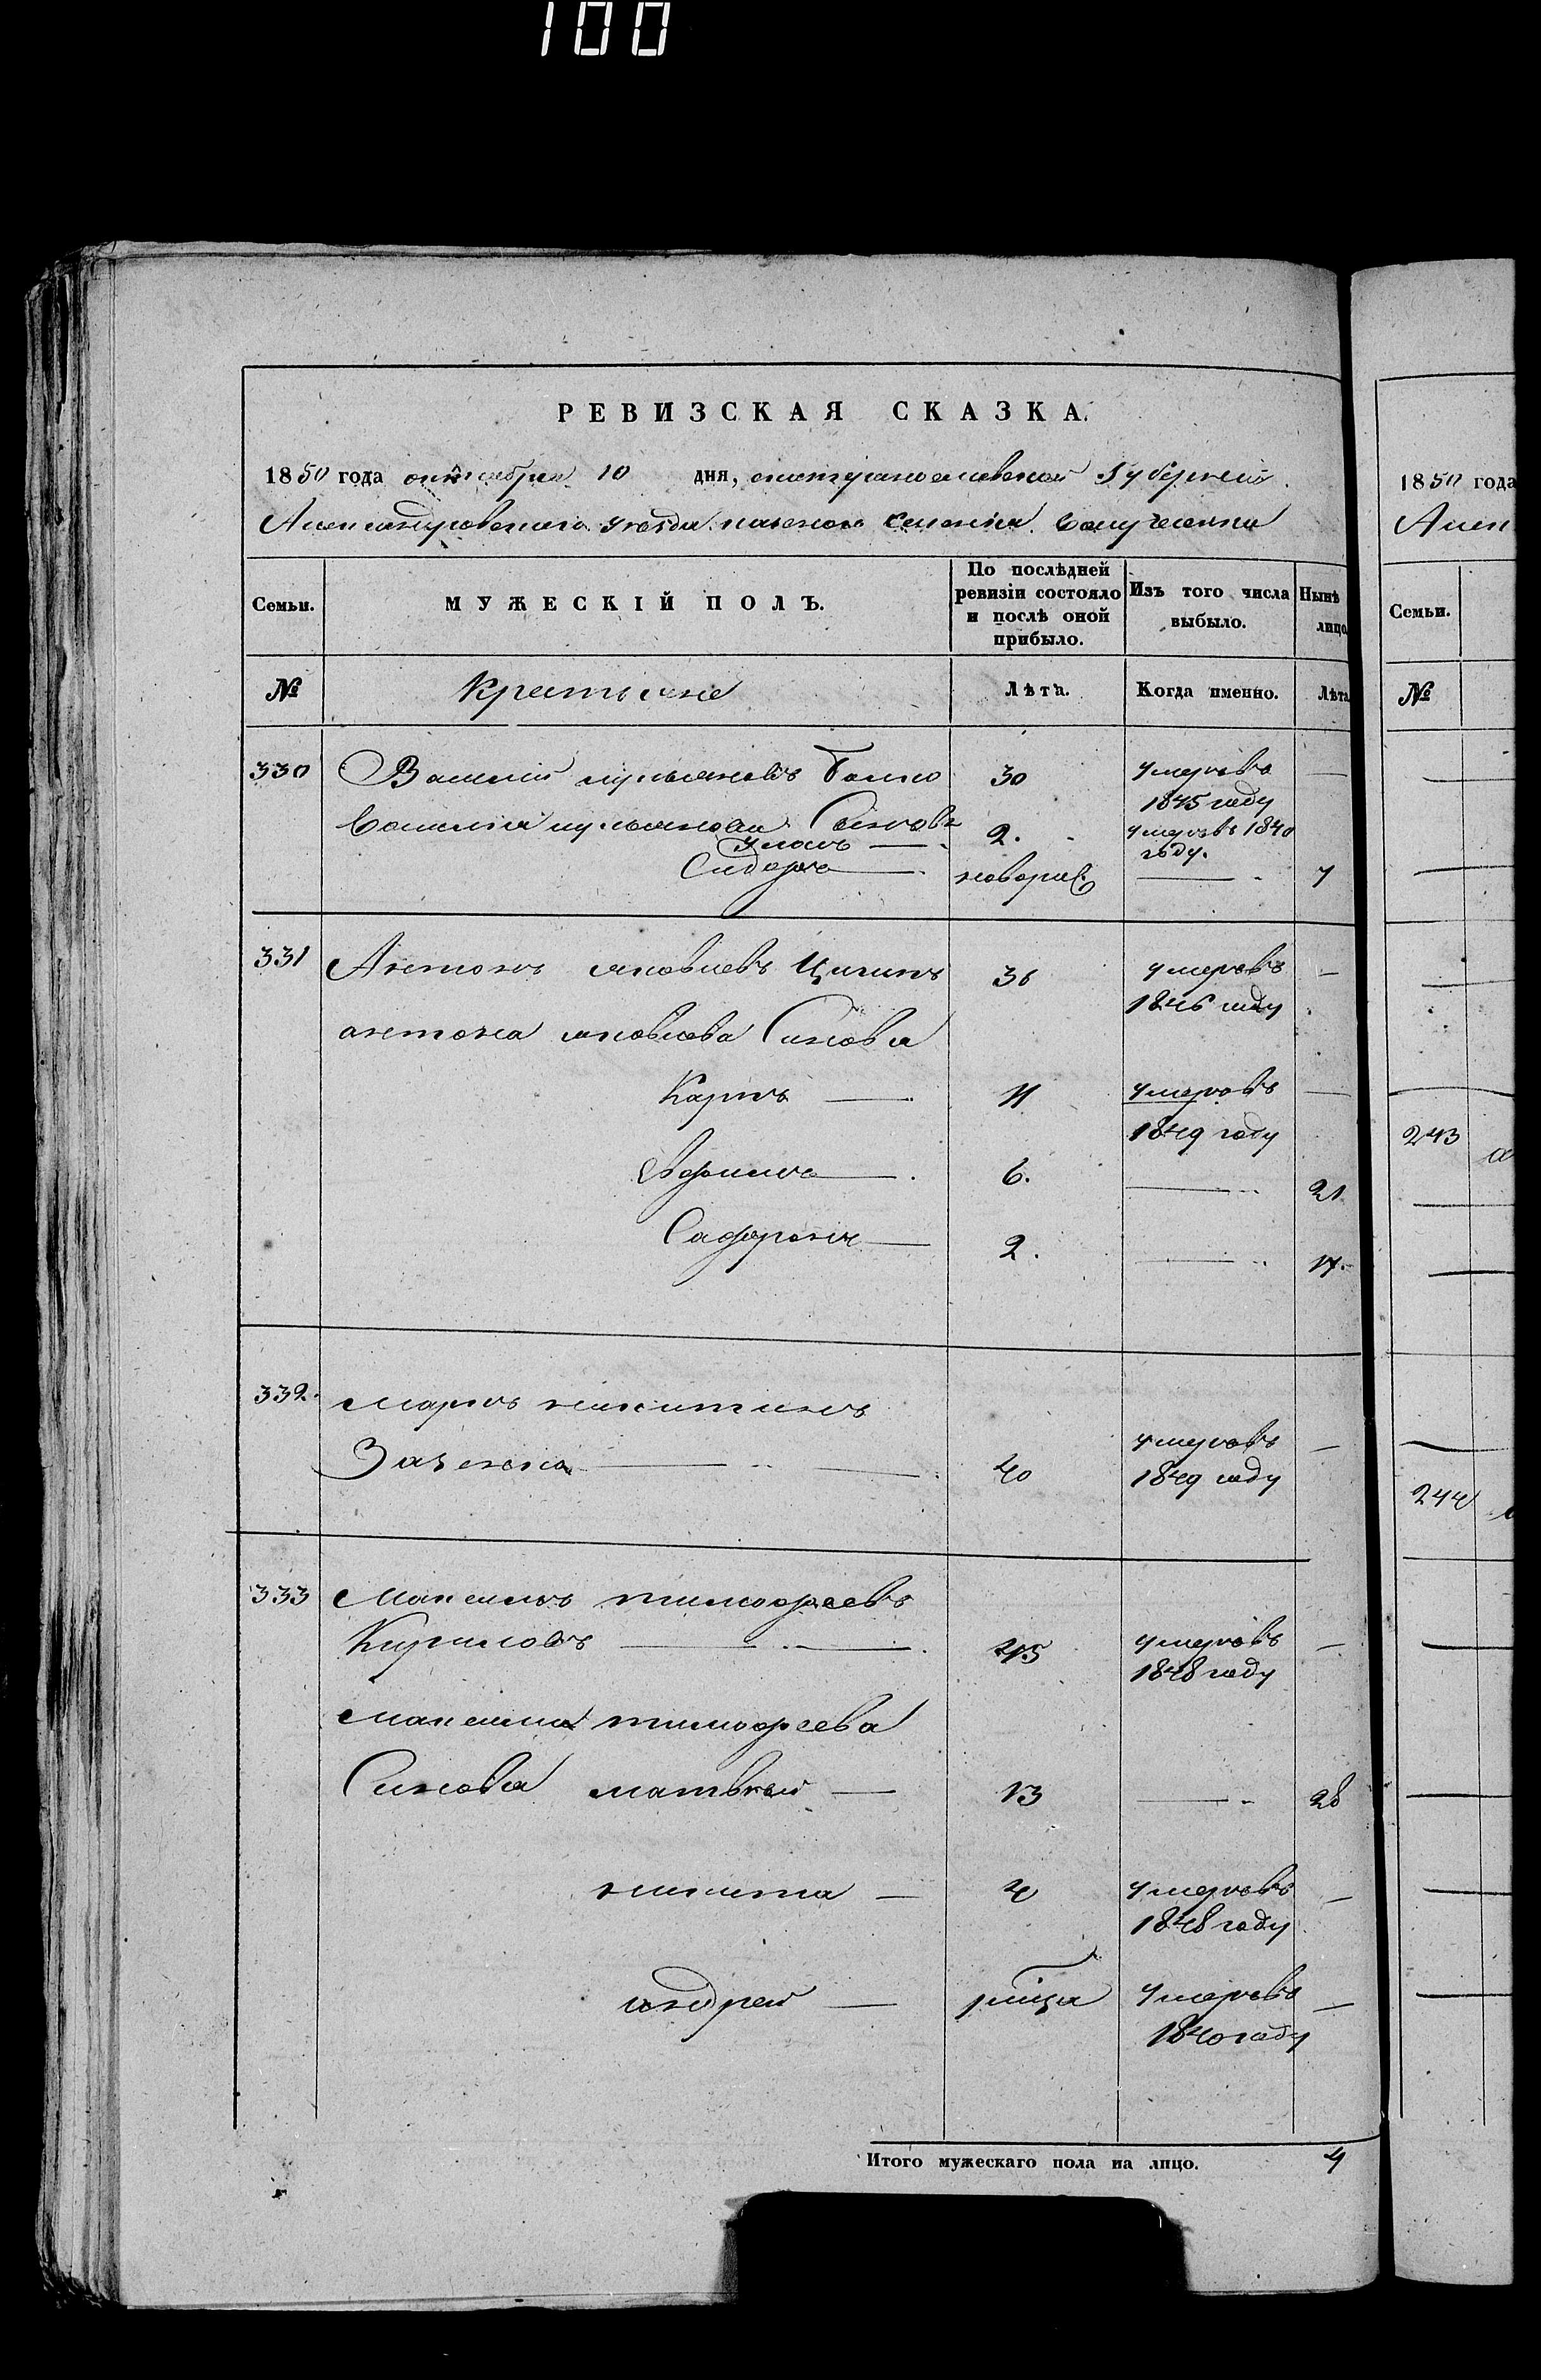 100
РЕВИЗСКАЯ СКАЗКА.
1850 года октября 10 дня, екатеринославской губернии
Александровского уезда казенного селения
Семьи.
МУЖЕСКІЙ ПОЛЪ.
По послѣдней ревизіи состояло и послѣ оной прибыло.
Изъ того числа выбыло.
Нынѣ лицо
№
Крестьяне
Лѣта.
Когда именно.
Лѣта
330 Василий лукьяновъ 30 умеръ въ —
1845 году
василия лукьянова Синовя
2. умеръ въ 1840
году.
Сидоръ — новорж — 7
331 Антонъ яковлевъ Цигинъ 36 умеръ въ —
1846 году
антона яковлева Синовя
Карпъ — 11 умеръ въ —
1849 году
6. — 21
Сафронъ — 2. — 17.
332. Маркъ никитинъ
40 умеръ въ —
1849 году
333 Максимъ тимофеевъ
Кириловъ — 45 умеръ въ —
1848 году
максима тимофеева
Синовя матвей — 13 — 28
никита — 4 умеръ въ —
1848 году
андрей — умеръ въ —
1840 году
Итого мужескаго пола на лицо. 4
1850 года
Алек
Семьи.
№
243
244